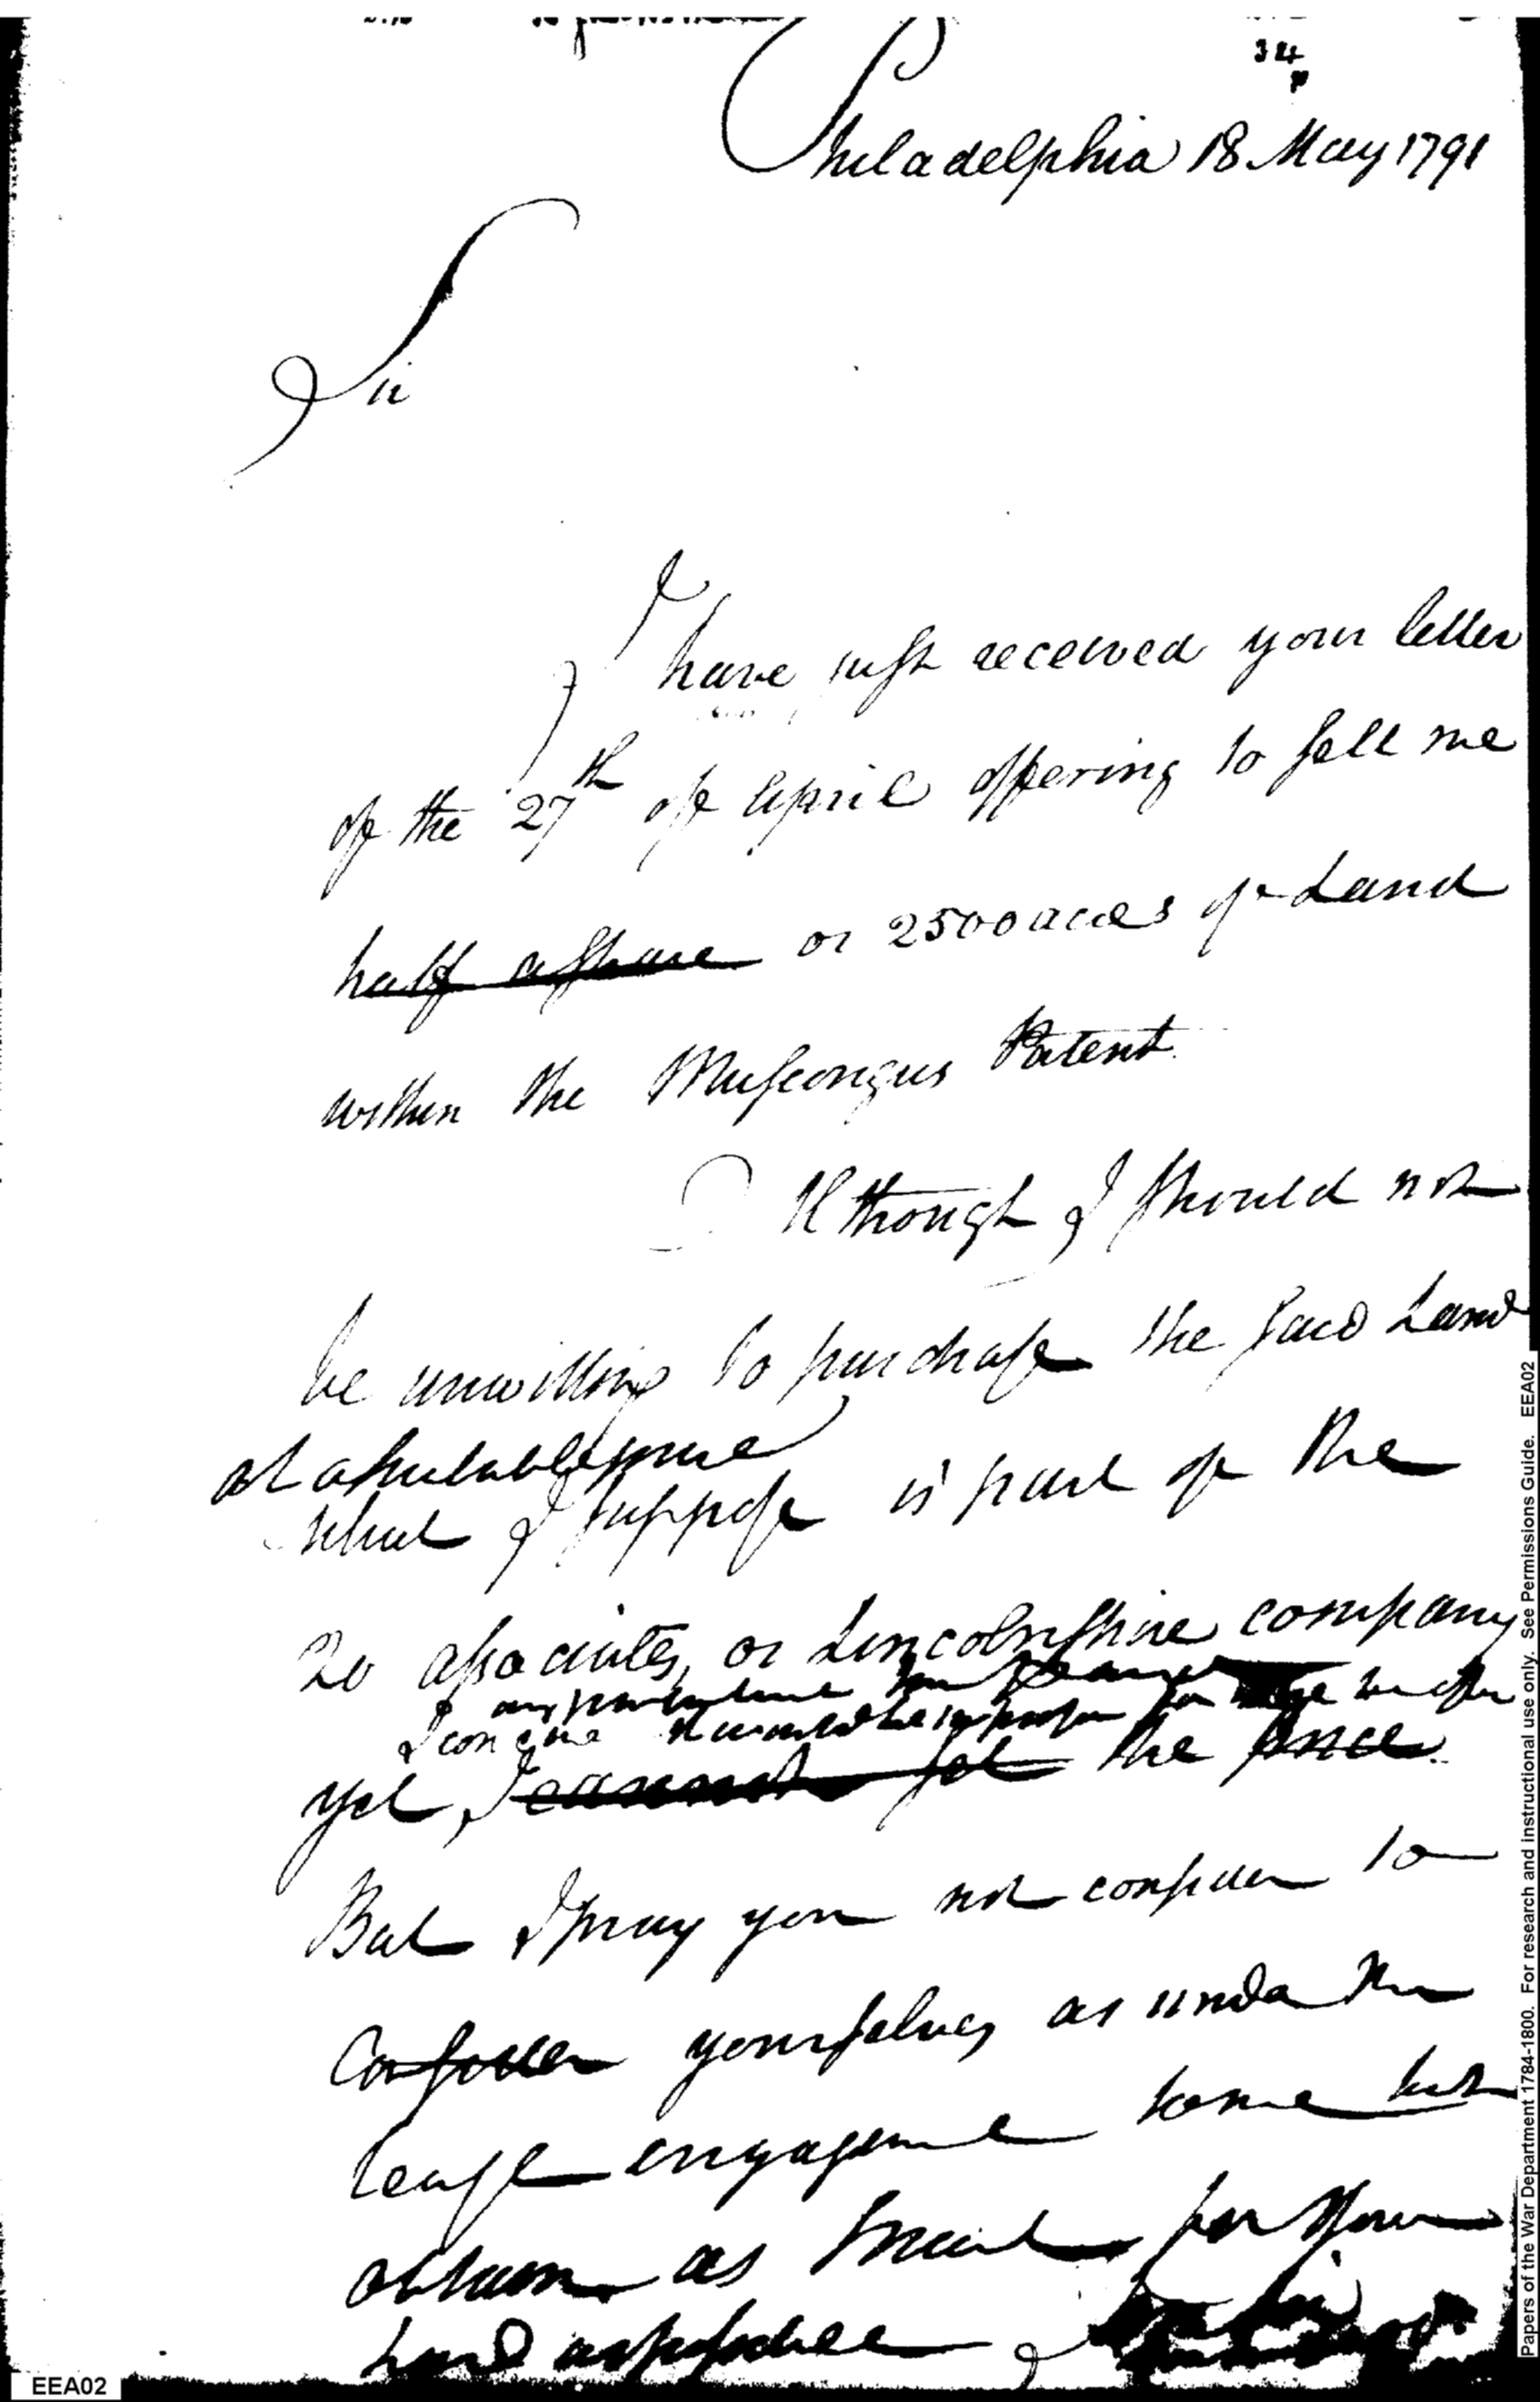 34
Philadelphia 18 May 1791
Sir
I have just received your letter
of the 27th of April offering to sell me
half a share or 2500 acres of Land
within the Muscongus Patent.
Although I should not
be unwilling to purchase the said Land
at a suitable price
which I suppose is part of the
20 associates, or Lincolnshire company
I conceive it would be improper for me
yet, I cannot set the price.
But I pray you not consider to
Consider yourselves as under the
least engagement to me but
obtain as much for your
Land as possible I
EEA02
Papers of the War Department 1784-1800. For research and instructional use only. See Permissions Guide. EEA02